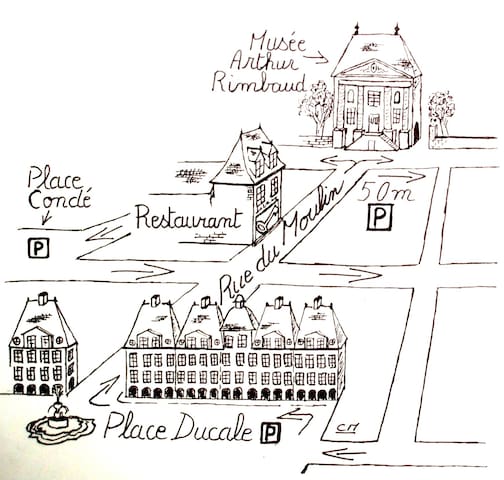 Musée
Arthur
Rimbaud
Place
Condé
P
Restaurant
Rue du Moulin
50m
P
Place Ducale P
CM